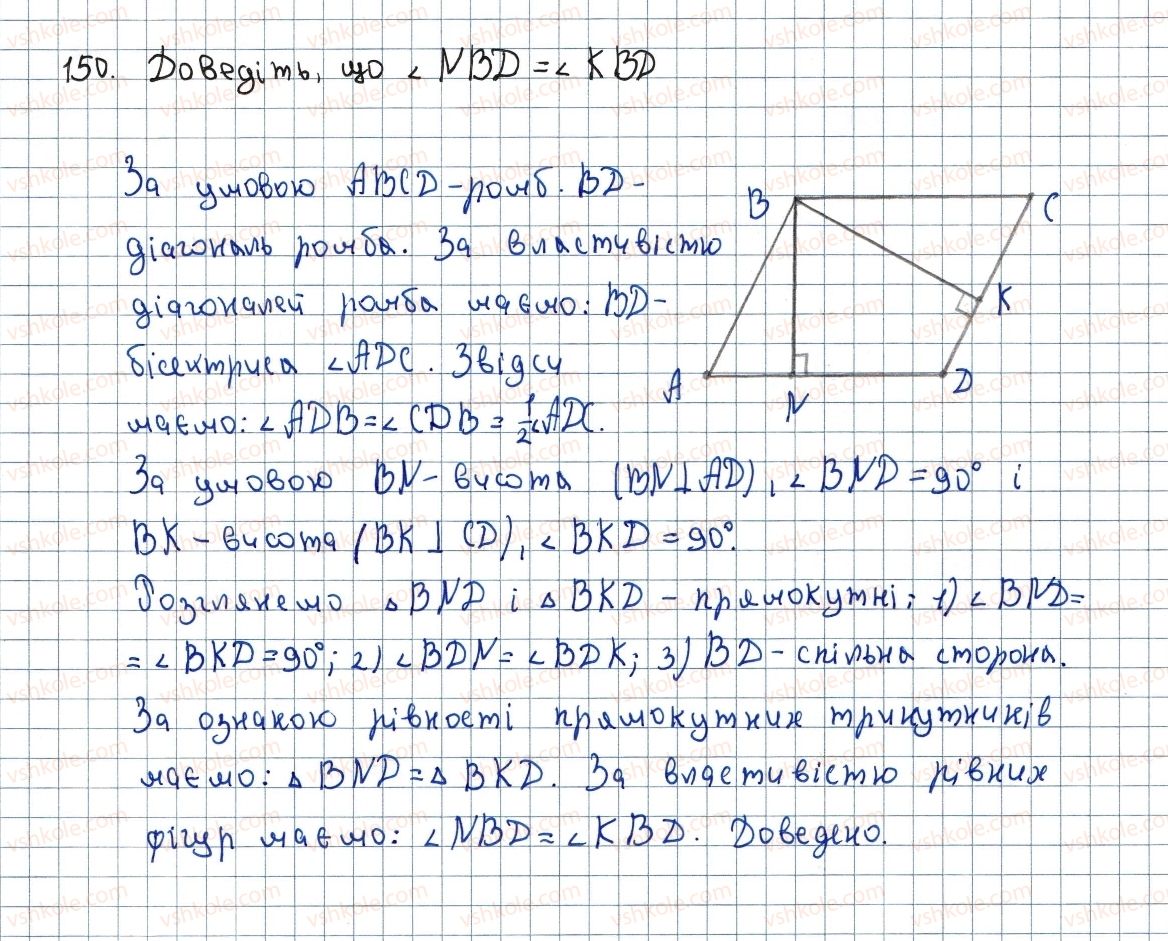 150. Доведіть, що ∠ NBD = ∠ KBD
За умовою ABCD - ромб. BD -
діагональ ромба. За властивістю
діагоналей ромба маємо: BD -
бісектриса ∠ADC. Звідси
маємо: ∠ADB = ∠CDB = 1/2∠ADC.
B
C
K
A
N
D
За умовою BN - висота (BN⊥AD), ∠BND = 90° і
BK - висота (BK ⊥ CD), ∠ BKD = 90°.
Розглянемо △ BND і △ BKD - прямокутні: 1) ∠ BND =
= ∠ BKD = 90°; 2) ∠ BDN = ∠ BDK; 3) BD - спільна сторона.
За ознакою рівності прямокутних трикутників
маємо: △ BND = △ BKD. За властивістю рівних
фігур маємо: ∠NBD = ∠KBD. Доведено.
vshkole.com